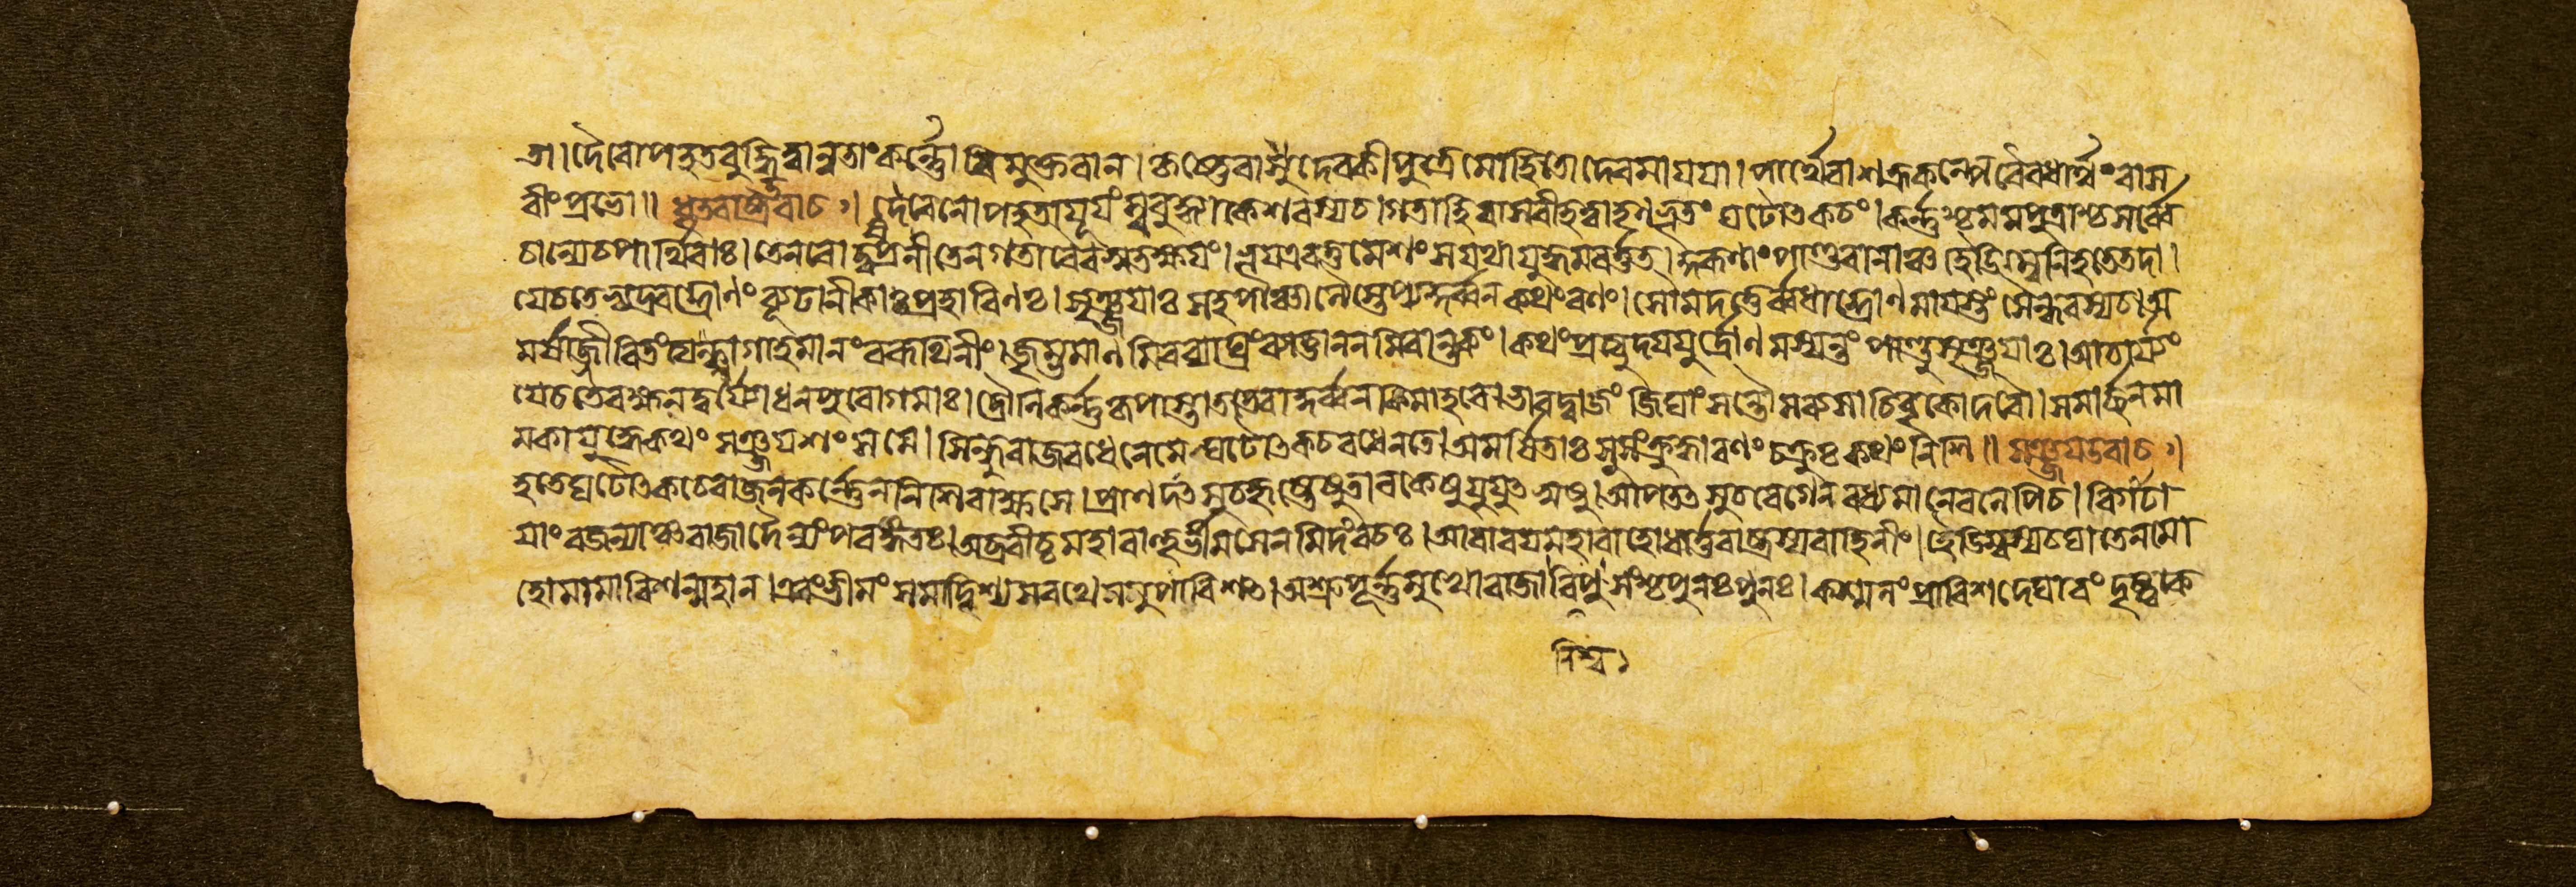 ত্রা। দৈবোপহতবুদ্ধিত্বান্নতাংকর্ণ্ণোবিমুক্তবান। কৃষ্ণেবাসৌদেবকীপুত্রেমোহিতোদেবমাযযা। পার্থেবাশক্রকল্পেবৈবধার্থংবাস
বীংপ্রভো॥ ধৃতরাষ্ট্রউবাচঃ। দৈবেনোপহতাযূযংস্ববুদ্ধ্যাকেশবস্যচ। গতাহিবাসবীহত্বাতৃণভূতংঘটোৎকচং। কর্ণ্ণশ্চমমপুত্রাশ্চসর্ব্বে
চান্যেচপার্থিবাঃ। তেনবৈদুষ্প্রনীতেনগতাবৈবস্বতক্ষযং। ভূযএবতুমেশংসযথাযুদ্ধমবর্ত্তত। কুরূণাংপাণ্ডবানাঞ্চহৈডিম্বেনিহতেতদা।
যেচতেভ্যদ্রবদ্দ্রোণংব্যূঢানীকাঃপ্রহারিণঃ। সৃঞ্জযাঃসহপাঞ্চালৈস্তেপ্যকুর্ব্বনকথংরণং। সৌমদত্তের্ব্বধাদ্দ্রোণমাযস্তংসৈন্ধবস্যচ। অ
মর্ষাজ্জীবিতংত্যক্ত্বাগাহমানংবরূথিনীং। জৃম্ভমাণমিবব্যাঘ্রংব্যাত্তাননমিবান্তকং। কথংপ্রত্যুদযযুর্দ্রোণমস্যন্তংপাণ্ডুসৃঞ্জযাঃ। আচার্যং
যেচতেরক্ষনদুর্যোধনপুরোগমাঃ। দ্রৌনিকর্ণ্ণকৃপাস্তাততেবাকুর্ব্বনকিমাহবে। ভারদ্বাজংজিঘাংসন্তৌসব্যসাচিবৃকোদরৌ। সমার্ছনমা
মকাযুদ্ধেকথংসঞ্জযশংসমে। সিন্ধুরাজবধেনেমেঘটোৎকচবধেনতে। অমর্ষিতাঃসুসংক্রুদ্ধারণংচক্রুঃকথংনিশি॥ সঞ্জযউবাচঃ।
হতেঘটোৎকচেরাজনকর্ণ্ণেননিশিরাক্ষসে। প্রণদৎসুচহৃষ্টেষুতাবকেষুযুযুৎসুষু। আপতৎসুচবেগেনবধ্যমানেবলেপিচ। বিগাঢা
যাংরজন্যাঞ্চরাজাদৈন্যংপরঙ্গতঃ। অব্রবীচ্চমহাবাহুর্ভীমসেনমিদংবচঃ। আবারযমহাবাহোধার্ত্তরাষ্ট্রস্যবাহিনীং। হৈডিম্বস্যচঘাতেনমো
হোমামাবিশন্মহান। এবংভীমংসমাদিশ্যস্বরথেসমুপাবিশৎ। অশ্রুপূর্ণ্ণমুখোরাজা পুনঃপুনঃ। কশ্মলংপ্রাবিশদ্ঘোরংদৃষ্ট্বাক
নিশ্ব